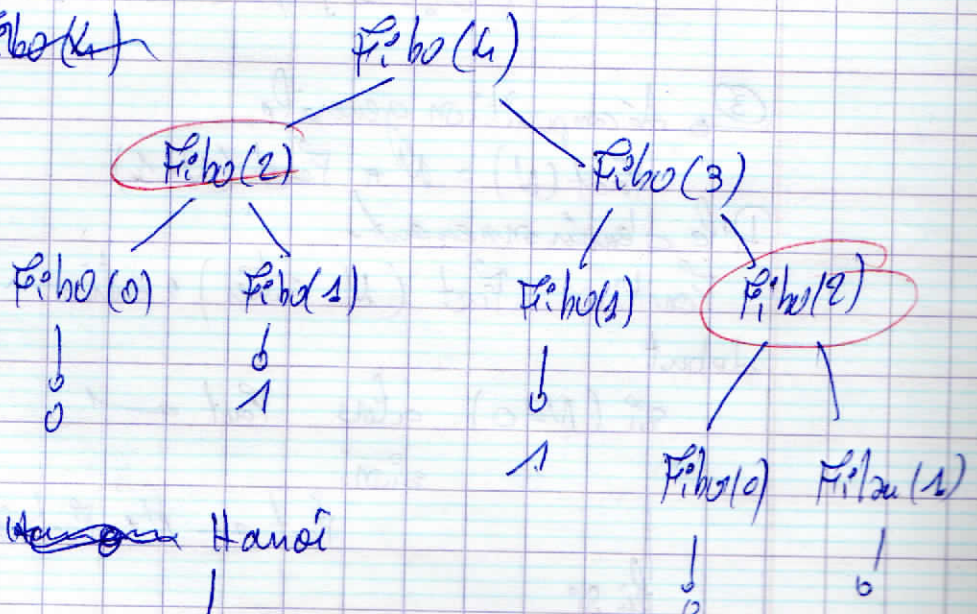 Fibo(4)
Fibo(2) Fibo(3)
Fibo(0) Fibo(1) Fibo(1) Fibo(2)
0 1
1
Fibo(0) Fibo(1)
Hanoï